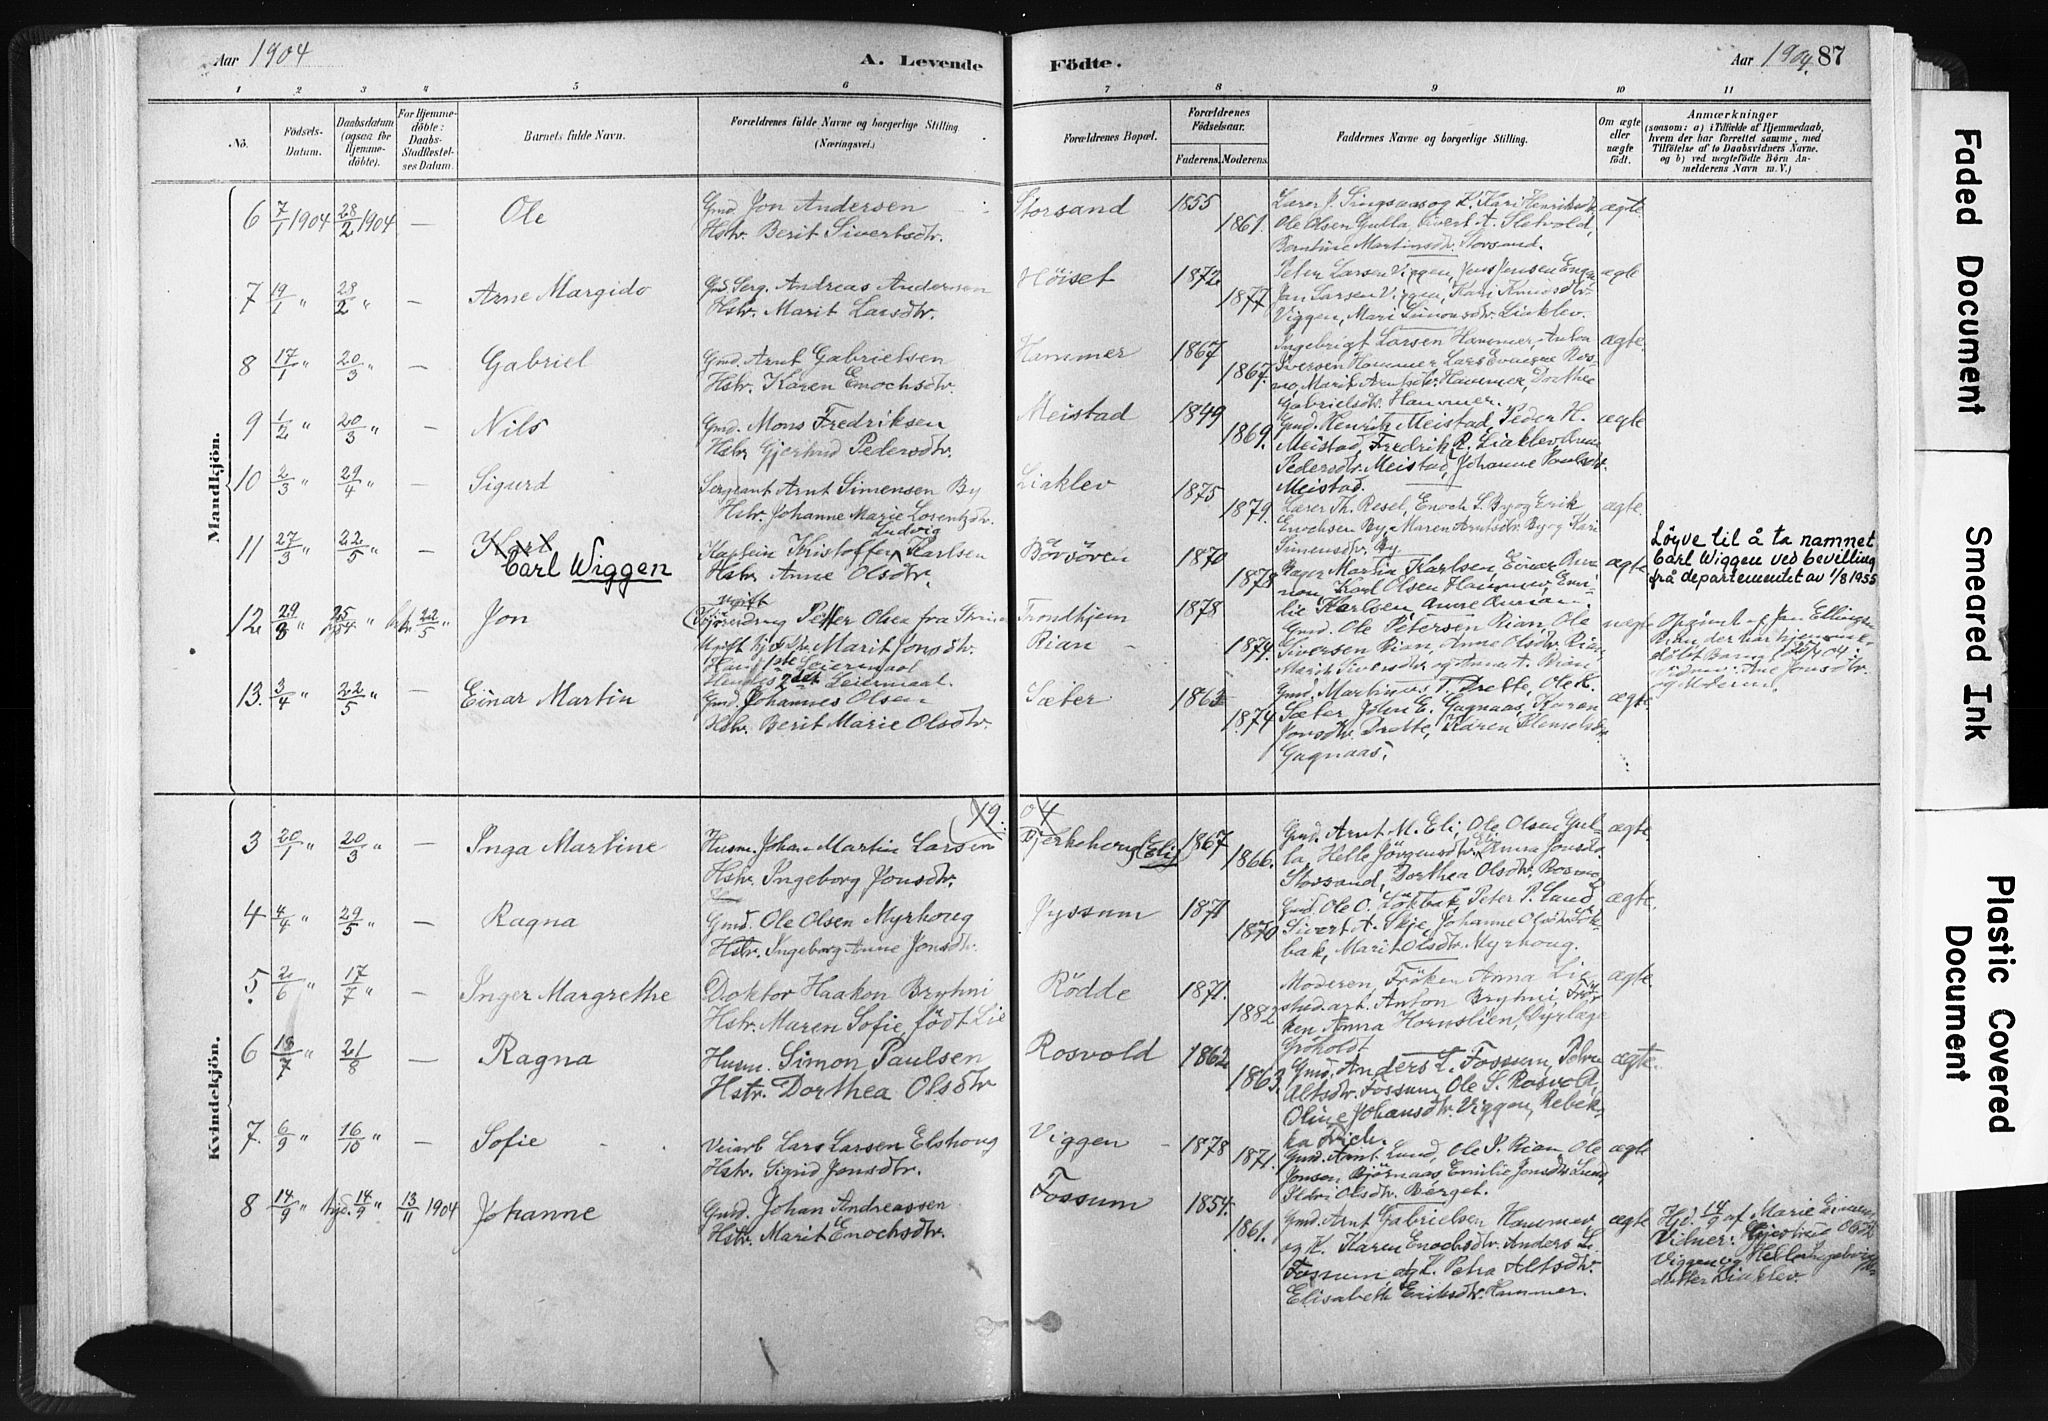 Aar 1904
A. Levende
Födte.
Aar 1904. 87
1 2 3 4 5 6 7 8 9 10 11
No.
Födsels-
Datum.
Daabsdatum
(ogsaa for
Hjemme-
döbte).
For Hjemme-
döbte:
Daabs-
Stadfæstel-
ses Datum.
Barnets fulde Navn.
Forældrenes fulde Navne og borgerlige Stilling
(Næringsvei.)
Forældrenes Bopæl.
Forældrenes
Födselsaar.
Faderens. Moderens.
Faddernes Navne og borgerlige Stilling.
Om ægte
eller
uægte
födt.
Anmærkninger
(saasom: a) i Tilfælde af Hjemmedaab,
hvem der har forrettet samme, med
Tilföielse af to Daabsvidners Navne,
og b) ved uægtefödte Börn An-
melderens Navn m. V.)
Mandkjön.
6 7/1 1904 28/2 1904 — Ole
Gmd. Jon Andersen
Hstr. Berit Sivertsdtr.
Storsand 1855 1861.
Lærer J. Singsaas og K. Kari Henriksdtr.
Ole Olsen Gulla, Sivert A. Sletvold,
Berntine Martinsdtr. Storsand.
ægte
7 19/1 " 28/2 " — Arne Margido
Gmd. Serg. Andreas Andersen
Hstr. Marit Larsdtr.
Höiset 1872 1877
Peter Larsen Viggen, Jens Jensen Engen,
Jan Larsen Viggen, Kari Knudsdtr.
Viggen, Mari Simonsdtr. Liaklev.
ægte
8 17/1 " 20/3 " — Gabriel
Gmd. Arnt Gabrielsen
Hstr. Karen Enochsdtr.
Hammer 1867 1867.
Ingebrigt Larsen Hammer, Anton
Iversen Hammer, Lars Evensen Ros-
mo, Marit Arntsdtr. Hammer, Dorthea
Gabrielsdtr. Hammer.
ægte.
9 1/2 " 20/3 " — Nils
Gmd. Mons Fredriksen
Hstr. Gjertrud Pedersdtr.
Meistad 1849 1869.
Gmd. Henrik Meistad, Peder H.
Meistad, Fredrik R. Liaklev,
Pedersdtr. Meistad, Johanne Paulsdtr.
Meistad.
ægte
10 2/3 " 24/4 " — Sigurd
Sergeant Arnt Simensen By
Hstr. Johanne Marie Lorentzdtr.
Liaklev 1875 1879.
Lærer Th. Resel, Enoch S. By og Erik
Enochsen By, Maren Arntsdtr. By og Kari
Simensdtr. By
ægte
11 27/3 " 22/5 " — Karl
Carl Wiggen
Kaptein Kristoffer Ludvig Karlsen
Hstr. Anne Olsdtr.
Börsören 1870 1878
Bager Martin Karlsen, Einar
Karl Olsen Hammer, Emi-
lie Karlsen, Anne
ægte
Löyve til å ta namnet
Carl Wiggen ved bevilling
frå departementet av 1/8 1955
12. 29/3 " 25/5 " 22/5 " Jon
ugift
Petter Olsen fra Strinden
Ugift Marit Jonsdtr.
Hans 1ste Leiermaal
Hendes 2det Leiermaal.
Trondhjem
Rian 1878 1874.
Gmd. Ole Petersen Rian, Ole
Siversen Rian, Anna Olsdtr. Rian,
Marit Siversdtr. og Anna A. Rian
uægte
Opgivet af Jan Ellingsen
Rian der har hjemme-
döbt Barnet
Vidner: Ane Jonsdtr.
og Moderen.
13. 3/4 " 22/5 " — Einar Martin
Gmd. Johannes Olsen
Hstr. Berit Marie Olsdtr.
Sæter 1863 1874.
Gmd. Martinus T. Drette, Ole K.
Sæter, John E. Gagnaas, Karen
Jonsdtr. Drette, Karen Klemetsdtr.
Gagnaas.
ægte.
Kvindekjön.
19 04
3 20/1 " 20/3 " — Inga Martine
Husm. Johan Martin Larsen
Hstr. Ingeborg Jonsdtr.
Bjerkehaug (Eli) 1867 1866.
Gmd. Arnt M. Eli, Ole Olsen Gul-
la, Helle Jörgensdtr. Eli, Anna Jonsdtr.
Storsand, Dorthea Olsdtr. Rosmo
ægte.
4 4/4 " 29/5 " — Ragna
Gmd. Ole Olsen Myrhoug
Hstr. Ingeborg Anne Jonsdtr.
Jyssum 1871 1870
Gmd. Ole O. Lökbak, Peter P. Lund
Sivert A. Skje, Johanne Olsdtr. Lök-
bak, Marit Olsdtr. Myrhoug.
ægte.
5. 2/6 " 17/7 " — Inger Margrethe
Doktor Haakon Brythni
Hstr. Maren Sofie, födt Lie
Rödde 1871. 1882
Moderen, Fröken Anna Lie,
stud. art. Anton Brythni, Frö-
ken Anna Hornslien, Dyrlæge
Gröholdt
ægte.
6 18/7 " 21/8 — Ragna
Husm. Simon Paulsen
Hstr. Dorthea Olsdtr
Rosvold 1862 1863.
Gmd. Anders L. Fossum, Petra
Altsdtr. Fossum, Ole S. Rosvold,
Oline Johansdtr. Viggen, Rebek-
ka
ægte.
7. 6/9 " 16/10 " — Sofie
Veiarb Lars Larsen Elshoug
Hstr. Sigrid Jonsdtr.
Viggen 1878 1871.
Gmd. Arnt Lund, Ole P. Rian, Ole
Jonsen Björnaas, Emilie Jonsdtr. Lund,
Ildri Olsdtr. Berget.
ægte
8 14/9 " hjd. 14/9 " 13/11 1904 Johanne
Gmd. Johan Andreassen
Hstr. Marit Enochsdtr.
Fossum 1854. 1861.
Gmd. Arnt Gabrielsen Hammer
og K. Karen Enochsdtr. Anders L.
Fossum og K. Petra Altsdtr.
Elisabeth Eriksdtr. Hammer.
ægte
Hjd. 14/9 af Marie
Vidner: Gjertrud Olsdtr
Viggen og Helle
datter Liaklev.
Faded Document
Smeared Ink
Plastic Covered
Document